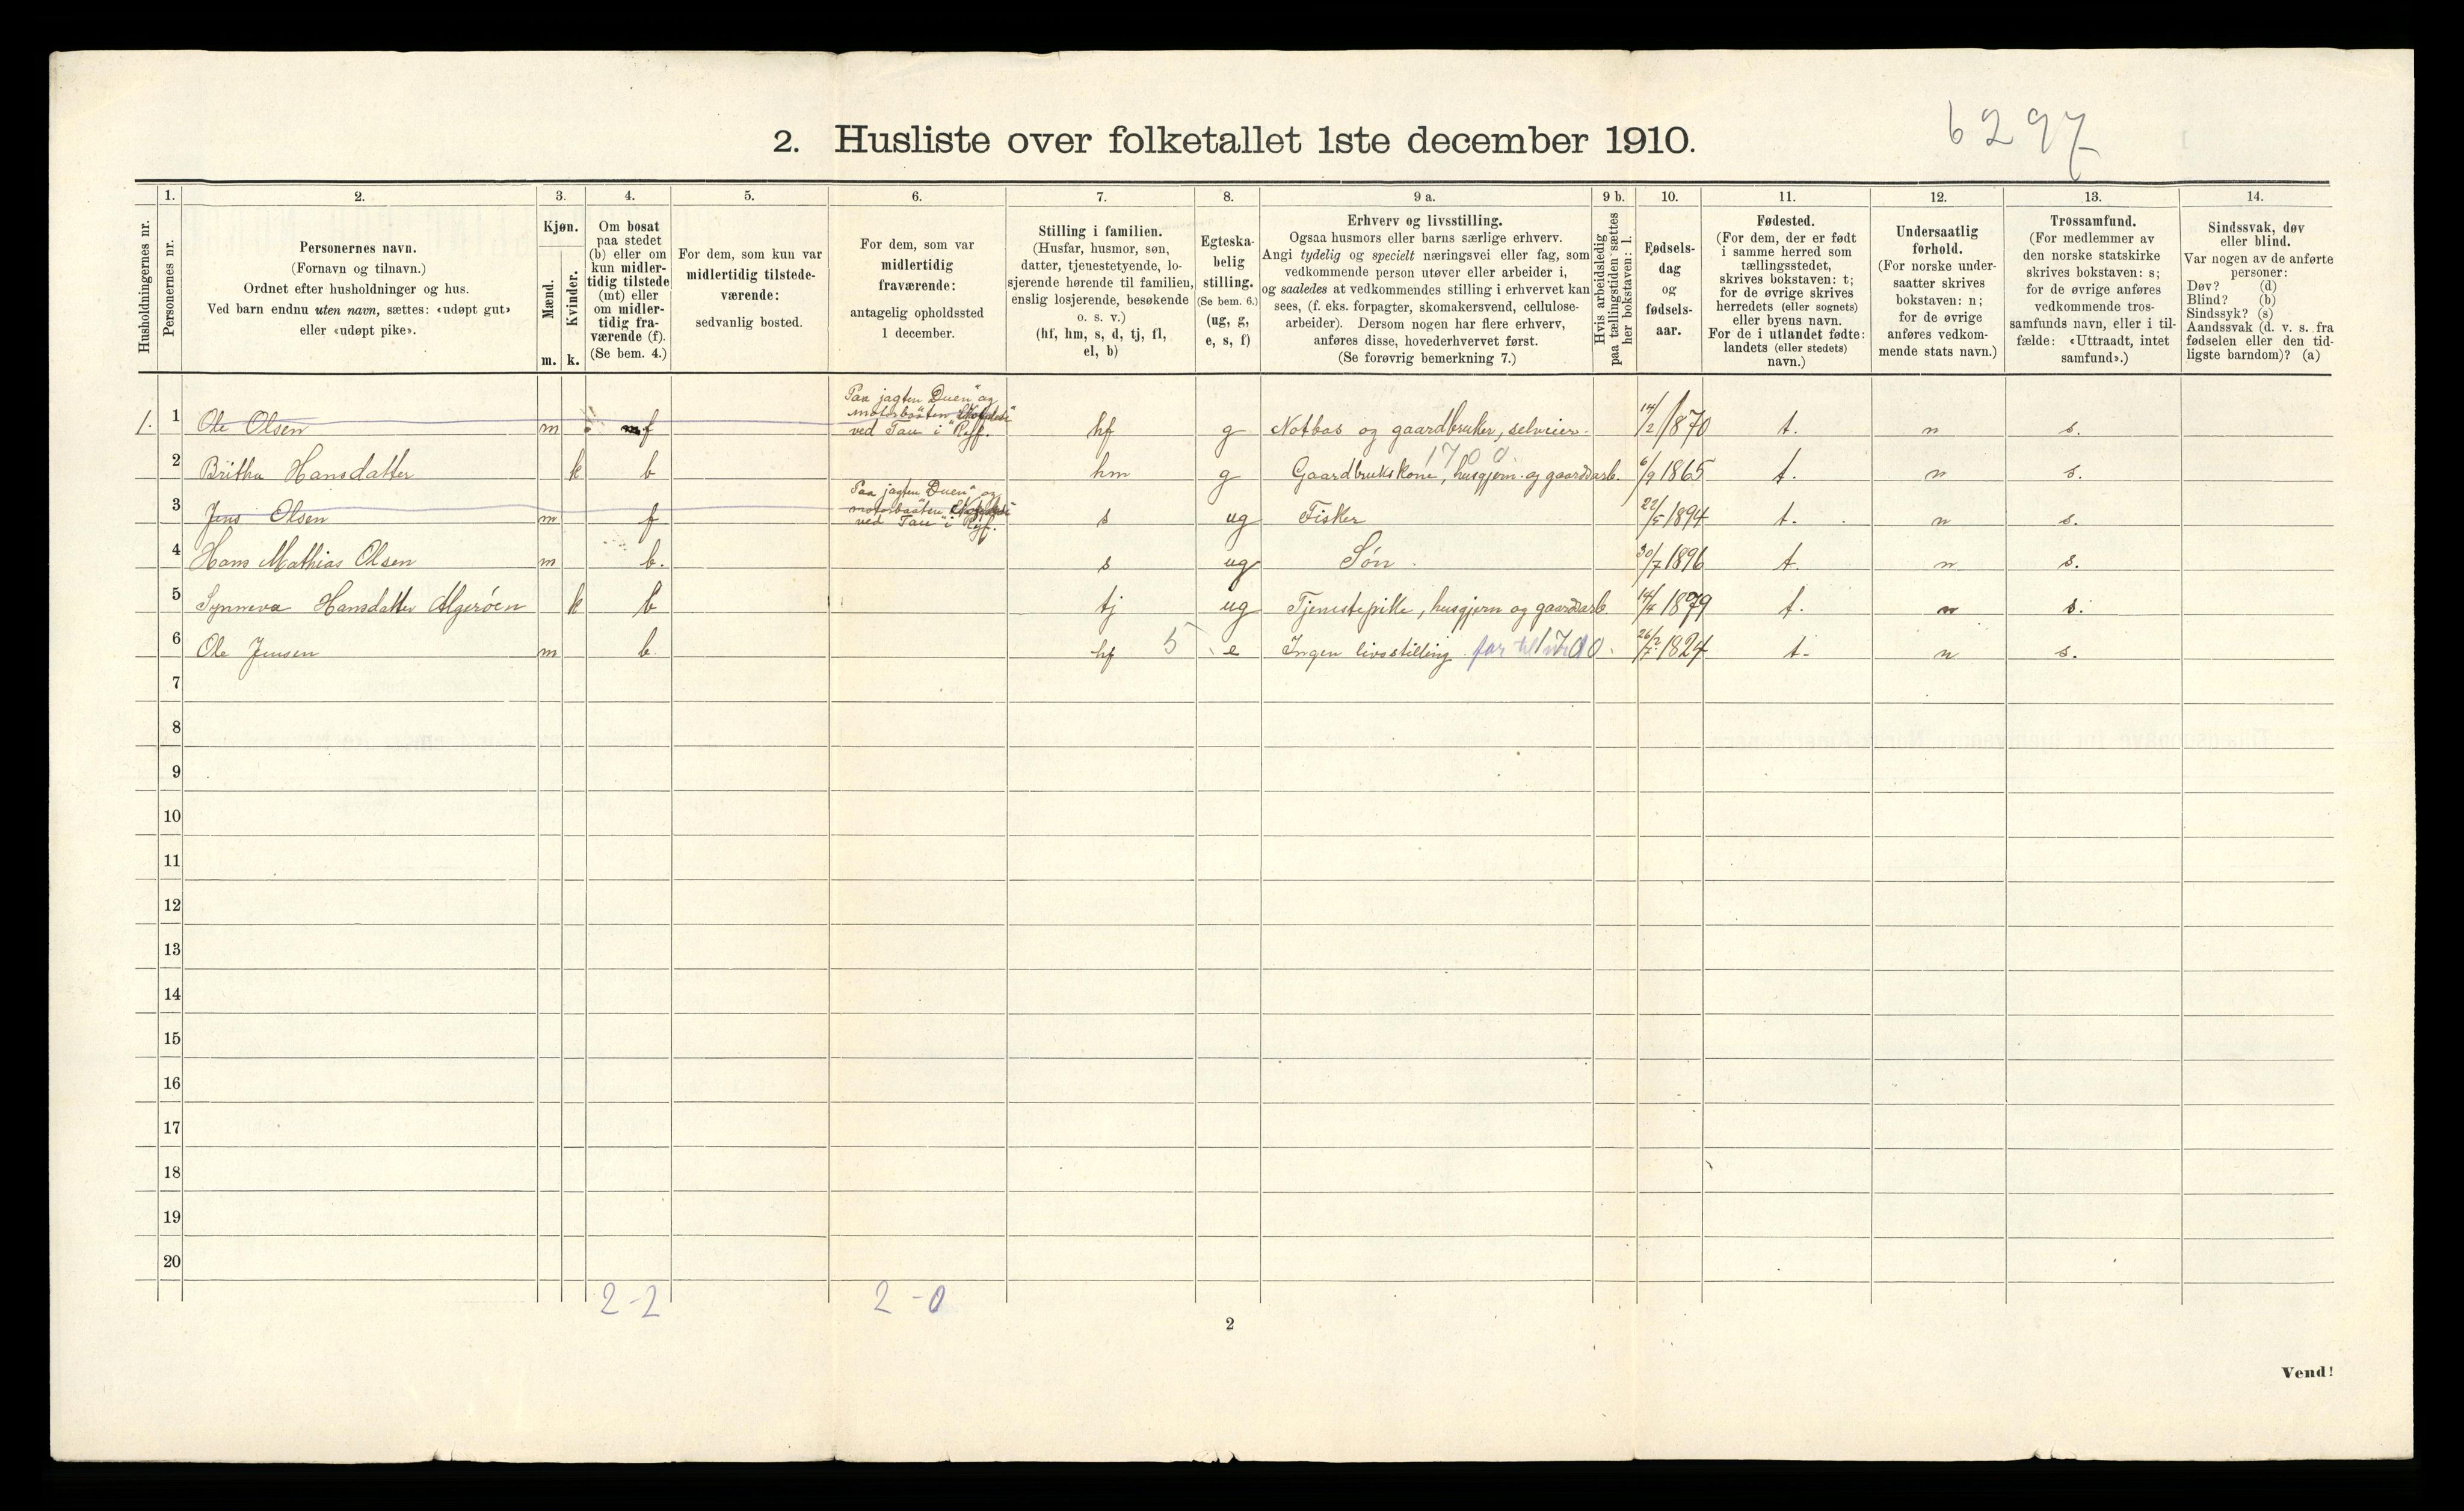 6297
2. Husliste over folketallet 1ste december 1910.
Husholdningernes nr.
1.
Personernes nr.
2.
Personernes navn.
(Fornavn og tilnavn.)
Ordnet efter husholdninger og hus.
Ved barn endnu uten navn, sættes: «udøpt gut»
eller «udøpt pike».
3.
Kjøn.
Mænd.
Kvinder.
m. k.
4.
Om bosat
paa stedet
(b) eller om
kun midler-
tidig tilstede
(mt) eller
om midler-
tidig fra-
værende (f).
(Se bem. 4.)
5.
For dem, som kun var
midlertidig tilstede-
værende:
sedvanlig bosted.
6.
For dem, som var
midlertidig
fraværende:
antagelig opholdssted
1 december.
7.
Stilling i familien.
(Husfar, husmor, søn,
datter, tjenestetyende, lo-
sjerende hørende til familien,
enslig losjerende, besøkende
o. s. v.)
(hf, hm, s, d, tj, fl,
el, b)
8.
Egteska-
belig
stilling.
(Se bem. 6.)
(ug, g,
e, s, f)
9 a.
Erhverv og livsstilling.
Ogsaa husmors eller barns særlige erhverv.
Angi tydelig og specielt næringsvei eller fag, som
vedkommende person utøver eller arbeider i,
og saaledes at vedkommendes stilling i erhvervet kan
sees, (f. eks. forpagter, skomakersvend, cellulose-
arbeider). Dersom nogen har flere erhverv,
anføres disse, hovederhvervet først.
(Se forøvrig bemerkning 7.)
9 b.
Hvis arbeidsledig
paa tællingstiden sættes
her bokstaven: l.
10.
Fødsels-
dag
og
fødsels-
aar.
11.
Fødested.
(For dem, der er født
i samme herred som
tællingsstedet,
skrives bokstaven: t;
for de øvrige skrives
herredets (eller sognets)
eller byens navn.
For de i utlandet fødte:
landets (eller stedets)
navn.)
12.
Undersaatlig
forhold.
(For norske under-
saatter skrives
bokstaven: n;
for de øvrige
anføres vedkom-
mende stats navn.)
13.
Trossamfund.
(For medlemmer av
den norske statskirke
skrives bokstaven: s;
for de øvrige anføres
vedkommende tros-
samfunds navn, eller i til-
fælde: «Uttraadt, intet
samfund».)
14.
Sindssvak, døv
eller blind.
Var nogen av de anførte
personer:
Døv? (d)
Blind? (b)
Sindssyk? (s)
Aandssvak (d. v. s. fra
fødselen eller den tid-
ligste barndom)? (a)
1. 1 Ole Olsen m f Paa jagten "Duen" og motorbaaten ved Tau i Ryf. hf g Notbas og gaardbruker, selveier 14/2 1870 t. n s.
1700
2 Britha Hansdatter k b hm g Gaardbrukskone, husgjern. og gaardsarb. 6/9 1865 t. n s.
3 Jens Olsen m f Paa jagten "Duen" og motorbaaten ved Tau i Ryf. s ug Fisker 22/5 1894 t. n s.
4 Hans Mathias Olsen m b. s ug Søn. 30/7 1896 t. n s.
5 Synneva Hansdatter Algerøen k b tj ug Tjenestepike, husgjern og gaardsarb. 14/4 1879 t. n s.
6 Ole Jensen m b. hf 5 e Ingen livsstilling. far til 1700 26/7 1824 t. n s.
7
8
9
10
11
12
13
14
15
16
17
18
19
20
2-2 2-0
2
Vend!